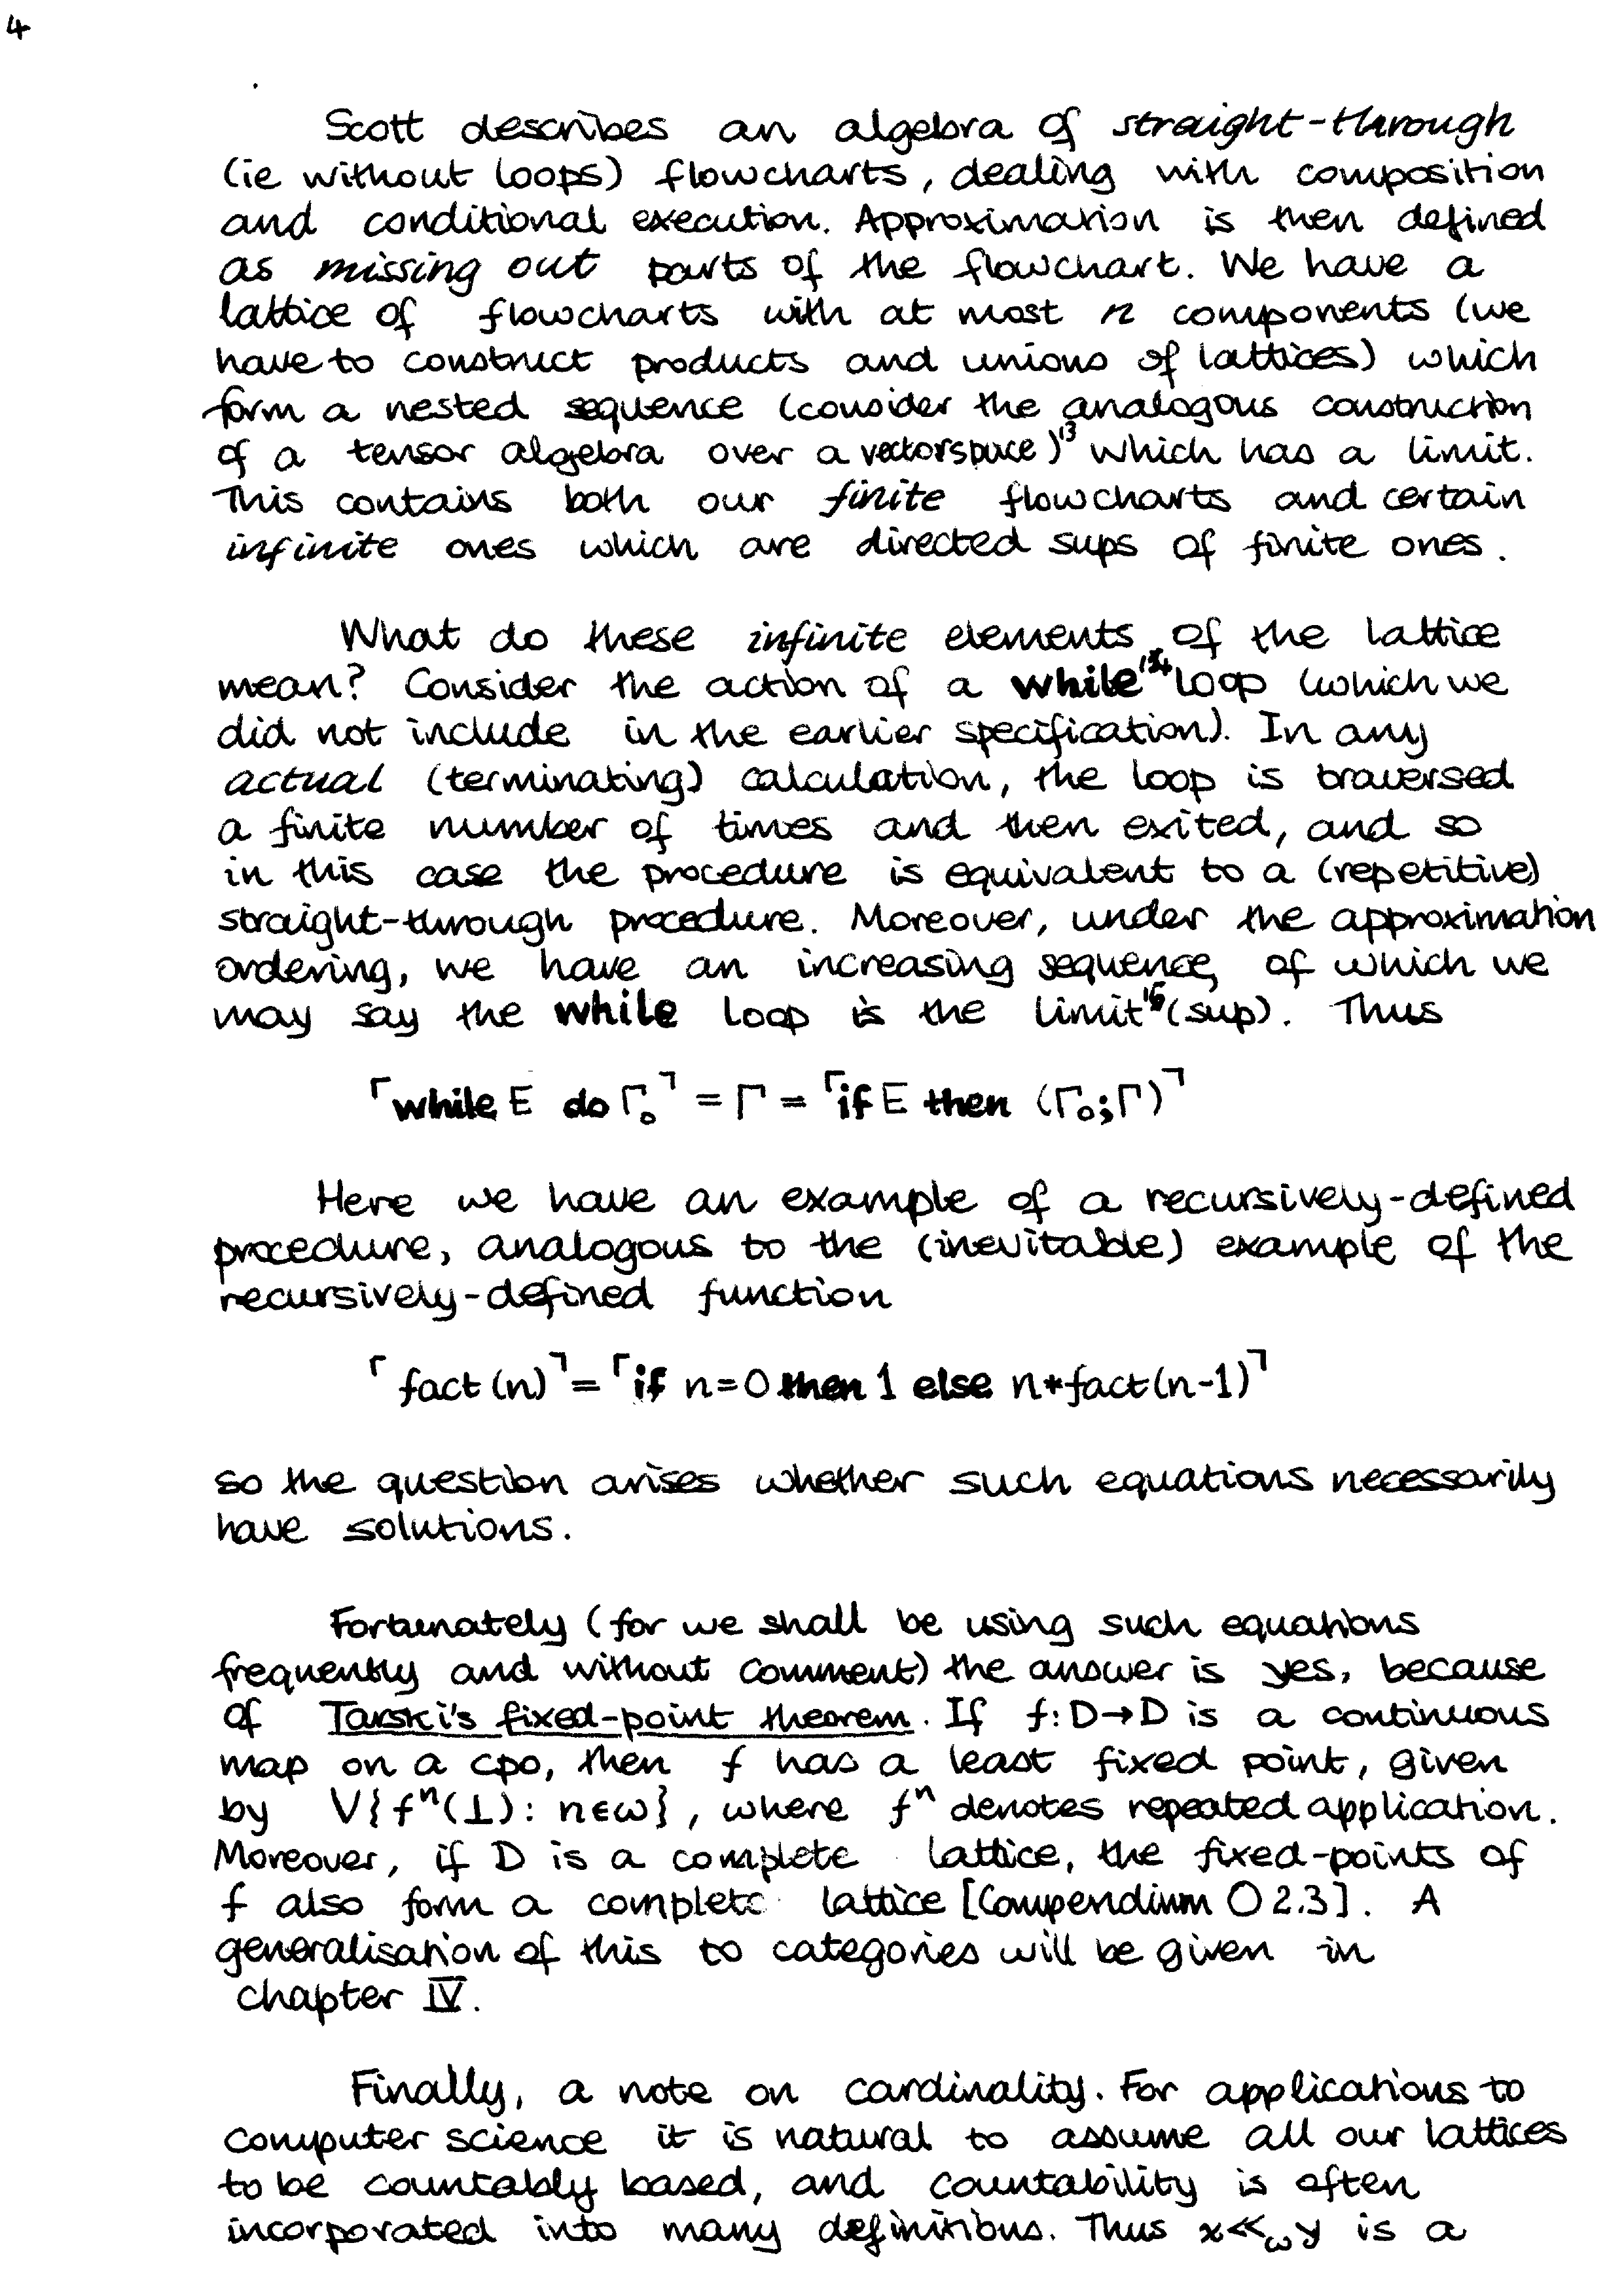 4
Scott describes an algebra of straight-through
(ie without loops) flowcharts, dealing with composition
and conditional execution. Approximation is then defined
as missing out parts of the flowchart. We have a
lattice of flowcharts with at most n components (we
have to construct products and unions of lattices) which
form a nested sequence (consider the analogous construction
of a tensor algebra over a vectorspace)¹³ which has a limit.
This contains both our finite flowcharts and certain
infinite ones which are directed sups of finite ones.
What do these infinite elements of the lattice
mean? Consider the action of a while¹⁴ loop (which we
did not include in the earlier specification). In any
actual (terminating) calculation, the loop is traversed
a finite number of times and then exited, and so
in this case the procedure is equivalent to a (repetitive)
straight-through procedure. Moreover, under the approximation
ordering, we have an increasing sequence, of which we
may say the while loop is the limit (sup). Thus
⌜while E do Γ₀⌝ = Γ = ⌜if E then (Γ₀;Γ)⌝
Here we have an example of a recursively-defined
procedure, analogous to the (inevitable) example of the
recursively-defined function
⌜fact(n)⌝ = ⌜if n=0 then 1 else n*fact(n-1)⌝
so the question arises whether such equations necessarily
have solutions.
Fortunately (for we shall be using such equations
frequently and without comment) the answer is yes, because
of Tarski's fixed-point theorem. If f:D→D is a continuous
map on a cpo, then f has a least fixed point, given
by V{fⁿ(⊥): n∈ω}, where fⁿ denotes repeated application.
Moreover, if D is a complete lattice, the fixed-points of
f also form a complete lattice [Compendium O 2.3]. A
generalisation of this to categories will be given in
chapter IV.
Finally, a note on cardinality. For applications to
computer science it is natural to assume all our lattices
to be countably based, and countability is often
incorporated into many definitions. Thus x≪_ω y is a